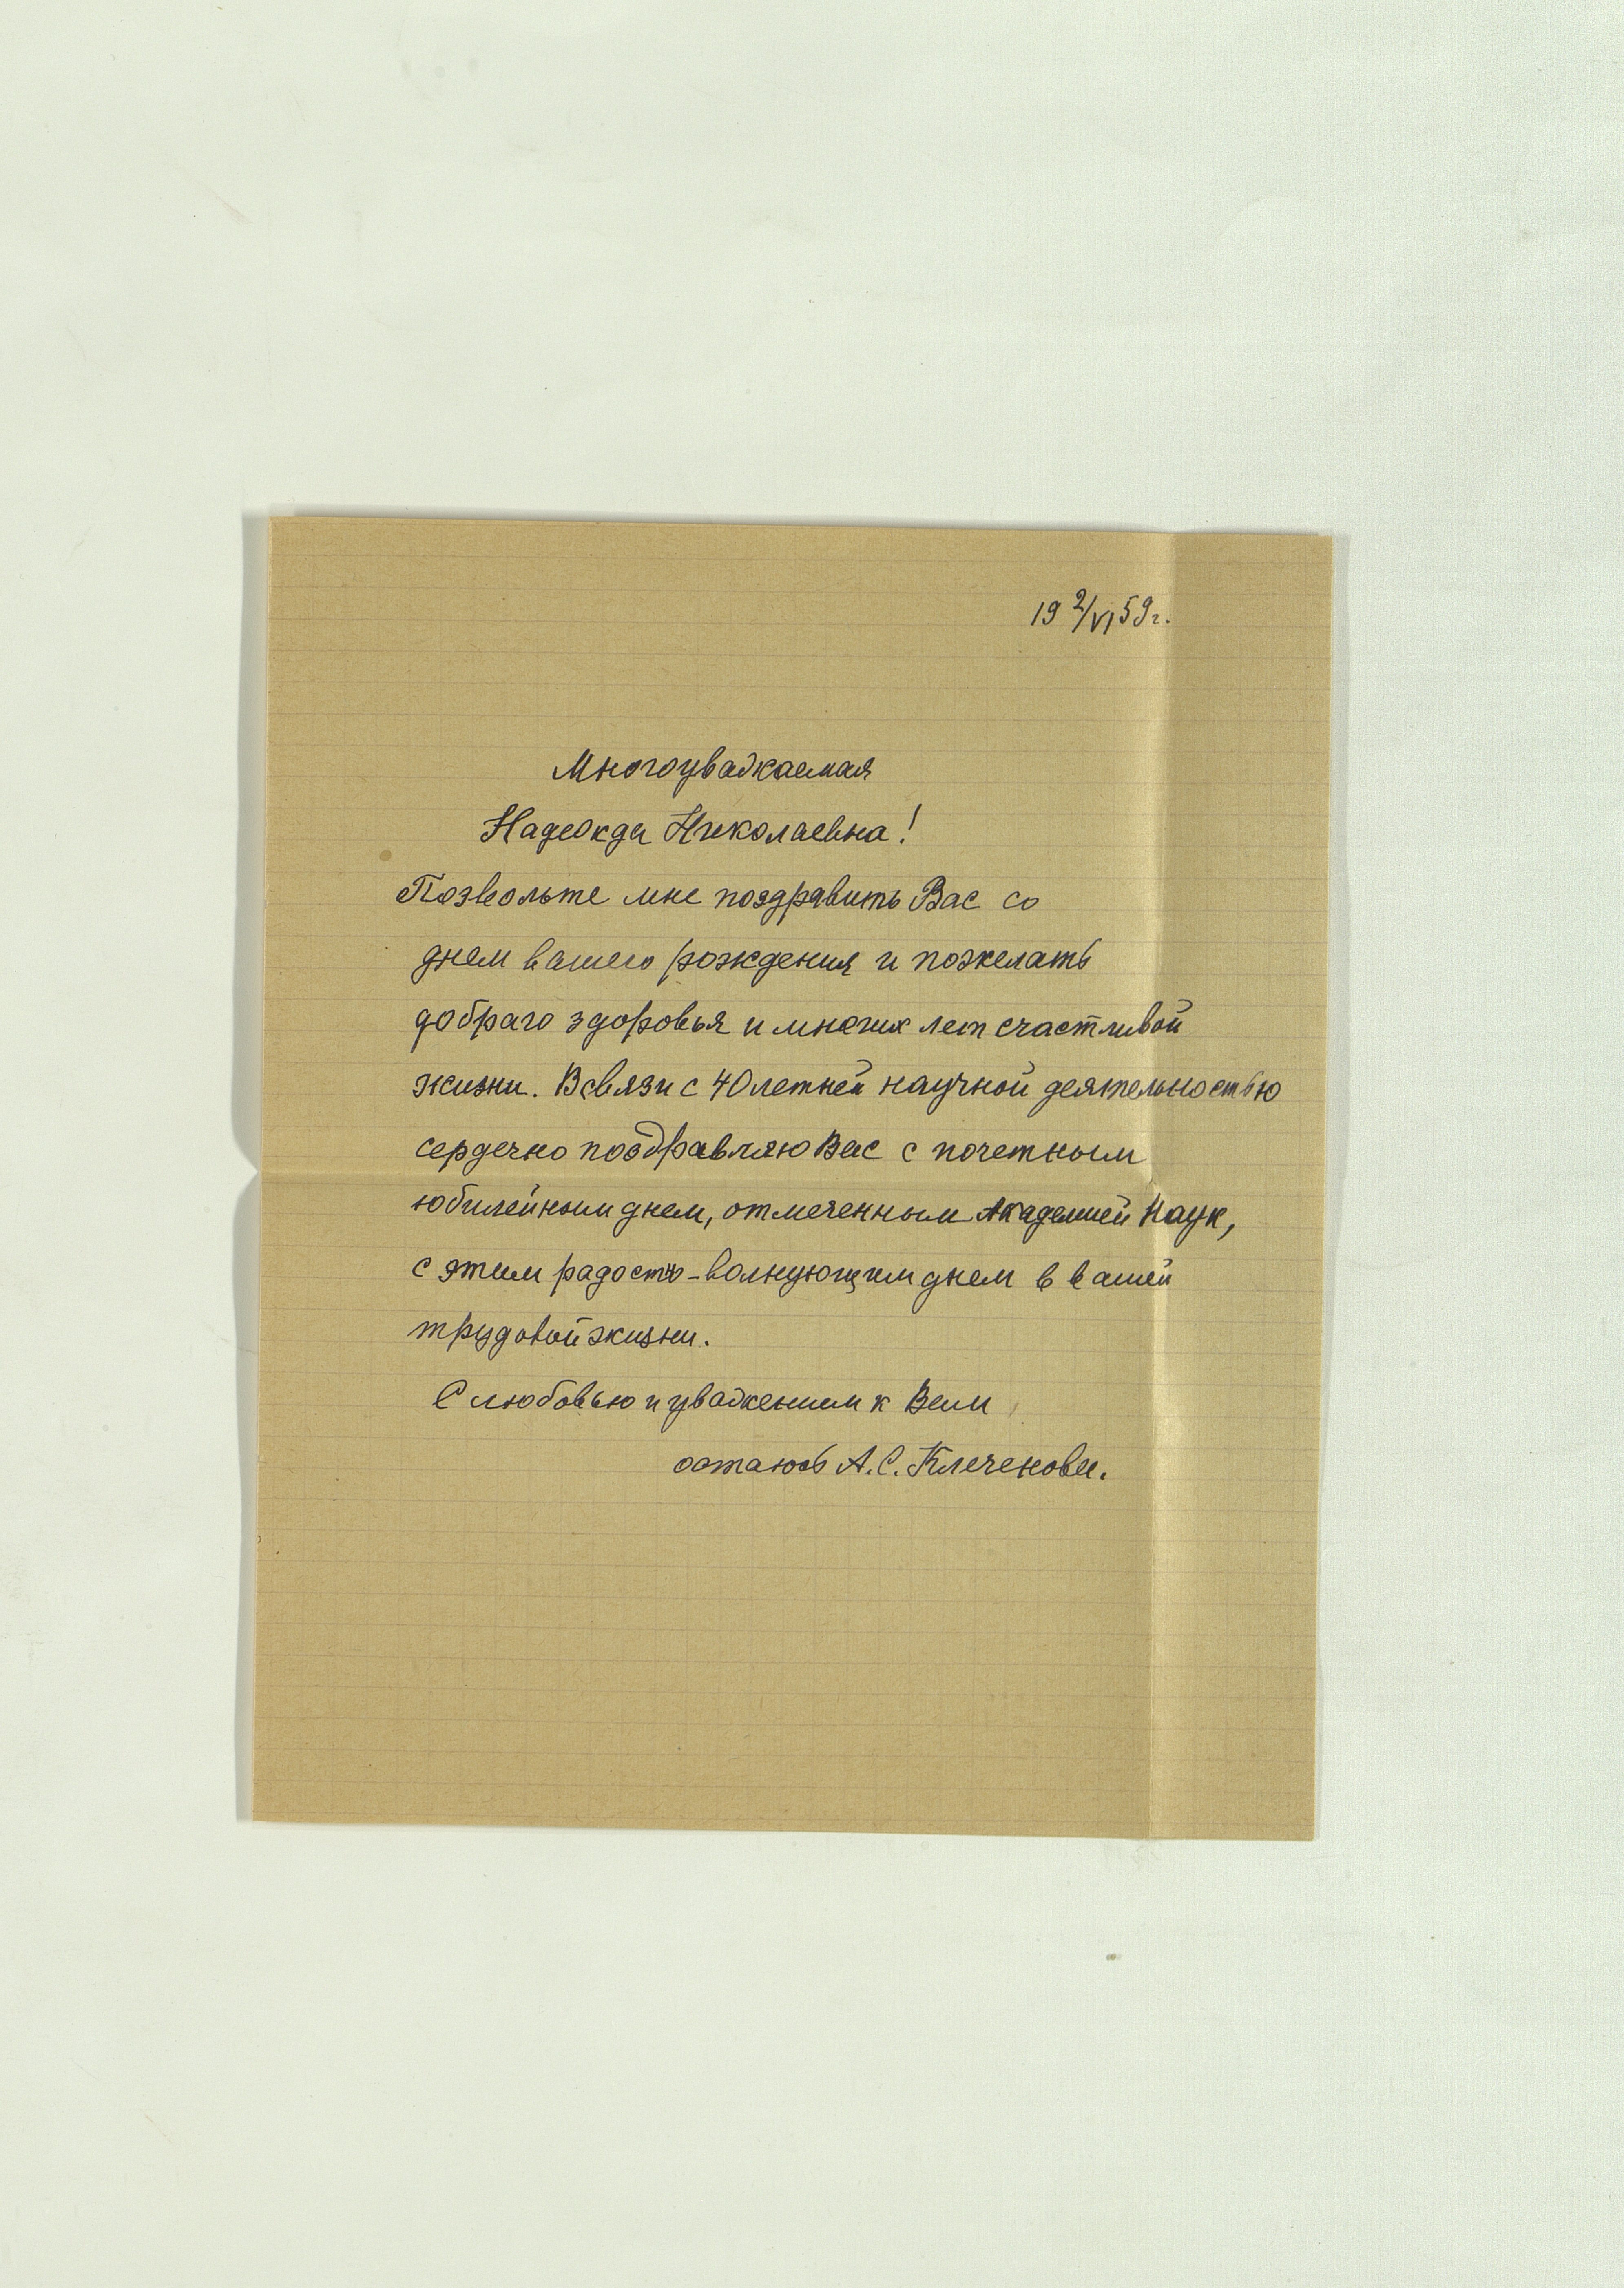 19 2/VI 59 г.
Многоуважаемая
Надежда Николаевна!
Позвольте мне поздравить Вас со
днем вашего рождения и пожелать
добраго здоровья и многих лет счастливой
жизни. В связи с 40 летней научной деятельностью
сердечно поздравляю Вас с почетным
юбилейным днем, отмеченным Академией Наук,
с этим радостно-волнующим днем в вашей
трудовой жизни.
С любовью и уважением к Вам
остаюсь А.С. Клеченова.